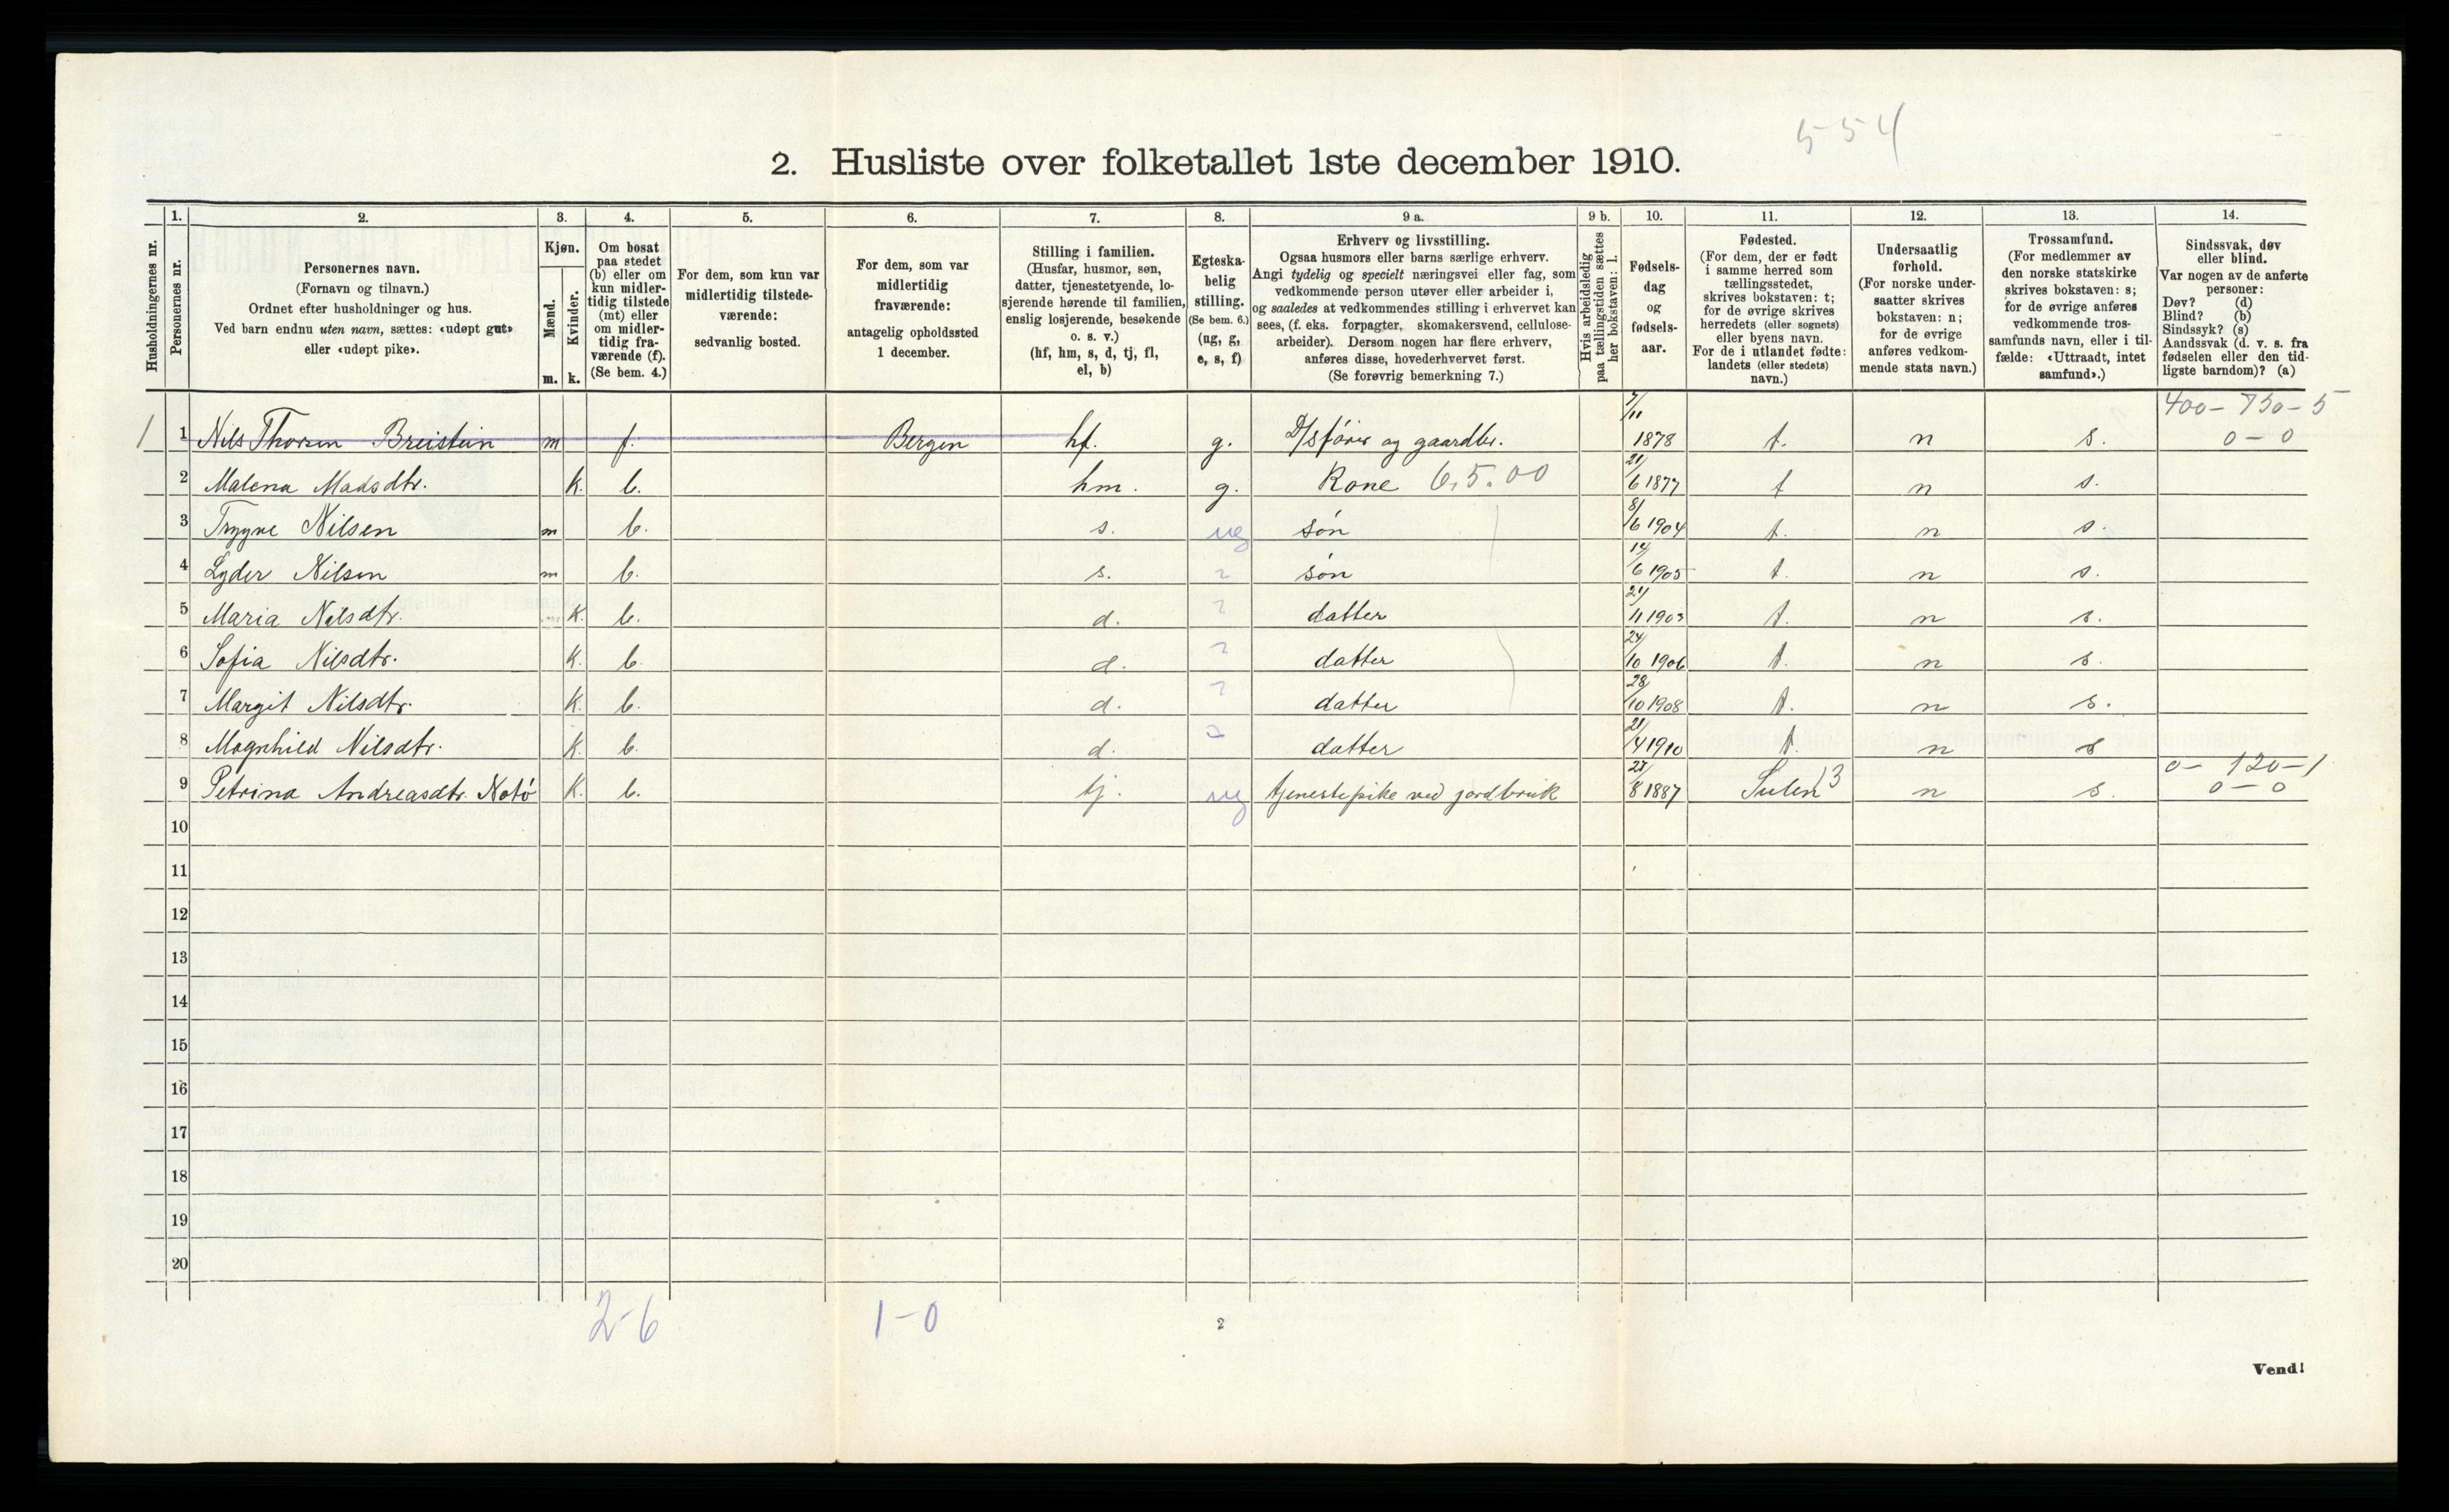 5 5 4
2. Husliste over folketallet 1ste december 1910.
Husholdningernes nr.
1. Personernes nr.
2. Personernes navn. (Fornavn og tilnavn.) Ordnet efter husholdninger og hus. Ved barn endnu uten navn, sættes: «udøpt gut» eller «udøpt pike».
3. Kjøn. Mænd. m. Kvinder. k.
4. Om bosat paa stedet (b) eller om kun midlertidig tilstede (mt) eller om midlertidig fraværende (f). (Se bem. 4.)
5. For dem, som kun var midlertidig tilstedeværende: sedvanlig bosted.
6. For dem, som var midlertidig fraværende: antagelig opholdssted 1 december.
7. Stilling i familien. (Husfar, husmor, søn, datter, tjenestetyende, losjerende hørende til familien, enslig losjerende, besøkende o. s. v.) (hf, hm, s, d, tj, fl, el, b)
8. Egteskabelig stilling. (Se bem. 6.) (ug, g, e, s, f)
9 a. Erhverv og livsstilling. Ogsaa husmors eller barns særlige erhverv. Angi tydelig og specielt næringsvei eller fag, som vedkommende person utøver eller arbeider i, og saaledes at vedkommendes stilling i erhvervet kan sees, (f. eks. forpagter, skomakersvend, cellulosearbeider). Dersom nogen har flere erhverv, anføres disse, hovederhvervet først. (Se forøvrig bemerkning 7.)
9 b. Hvis arbeidsledig paa tællingstiden sættes her bokstaven: l.
10. Fødselsdag og fødselsaar.
11. Fødested. (For dem, der er født i samme herred som tællingsstedet, skrives bokstaven: t; for de øvrige skrives herredets (eller sognets) eller byens navn. For de i utlandet fødte: landets (eller stedets) navn.)
12. Undersaatlig forhold. (For norske undersaatter skrives bokstaven: n; for de øvrige anføres vedkommende stats navn.)
13. Trossamfund. (For medlemmer av den norske statskirke skrives bokstaven: s; for de øvrige anføres vedkommende trossamfunds navn, eller i tilfælde: «Uttraadt, intet samfund».)
14. Sindssvak, døv eller blind. Var nogen av de anførte personer: Døv? (d) Blind? (b) Sindssyk? (s) Aandssvak (d. v. s. fra fødselen eller den tidligste barndom)? (a)
400 - 750 - 5
1 1 Nils Thorsen Breistein m f. Bergen hf. g. D/sfører og gaardbr. 7/11 1878 t. n s. 0 - 0
2 Malena Madsdtr. k. b. hm. g. Kone 6.5.00 21/6 1877 t n s.
3 Trygve Nilsen m b. s. ug søn 8/6 1904 t. n s.
4 Lyder Nilsen m b. s. søn 14/6 1905 t. n s.
5 Maria Nilsdtr. k. b. d. datter 21/11 1903 t. n s.
6 Sofia Nilsdtr. k. b. d. datter 24/10 1906 t. n s.
7 Margit Nilsdtr. k. b. d. datter 28/10 1908 t. n s.
8 Magnhild Nilsdtr. k. b. d. datter 21/4 1910 t. n s
0 - 120 - 1
9 Petrina Andreasdtr. Notø k. b. tj. ug tjenestepike ved jordbruk 27/8 1887 Sulen 13 n s. 0 - 0
10
11
12
13
14
15
16
17
18
19
20
2-6 1-0
2
Vend!